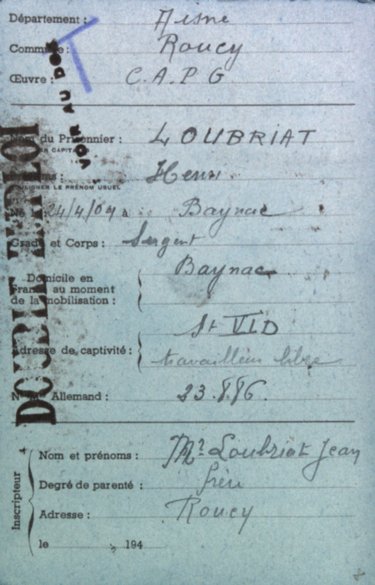 Département : Aisne
Commune : Roucy
Œuvre : C.A.P.G
VOIR AU DOS
DOUBLE EMPLOI
Nom du Prisonnier : LOUBRIAT
EN CAPITALES
Prénoms : Henri
SOULIGNER LE PRÉNOM USUEL
Né le 24/4/09 à Baynac
Grade et Corps : Sergent
Domicile en
France au moment
de la mobilisation :
Baynac
St VI D
Adresse de captivité : travailleur libre
N° Allemand : 23.886.
Inscripteur
Nom et prénoms : Mr Loubriat Jean
Degré de parenté : frère
Adresse : Roucy
le , 194